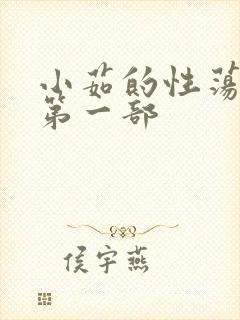 小茹的性荡
第一部
侯宇燕